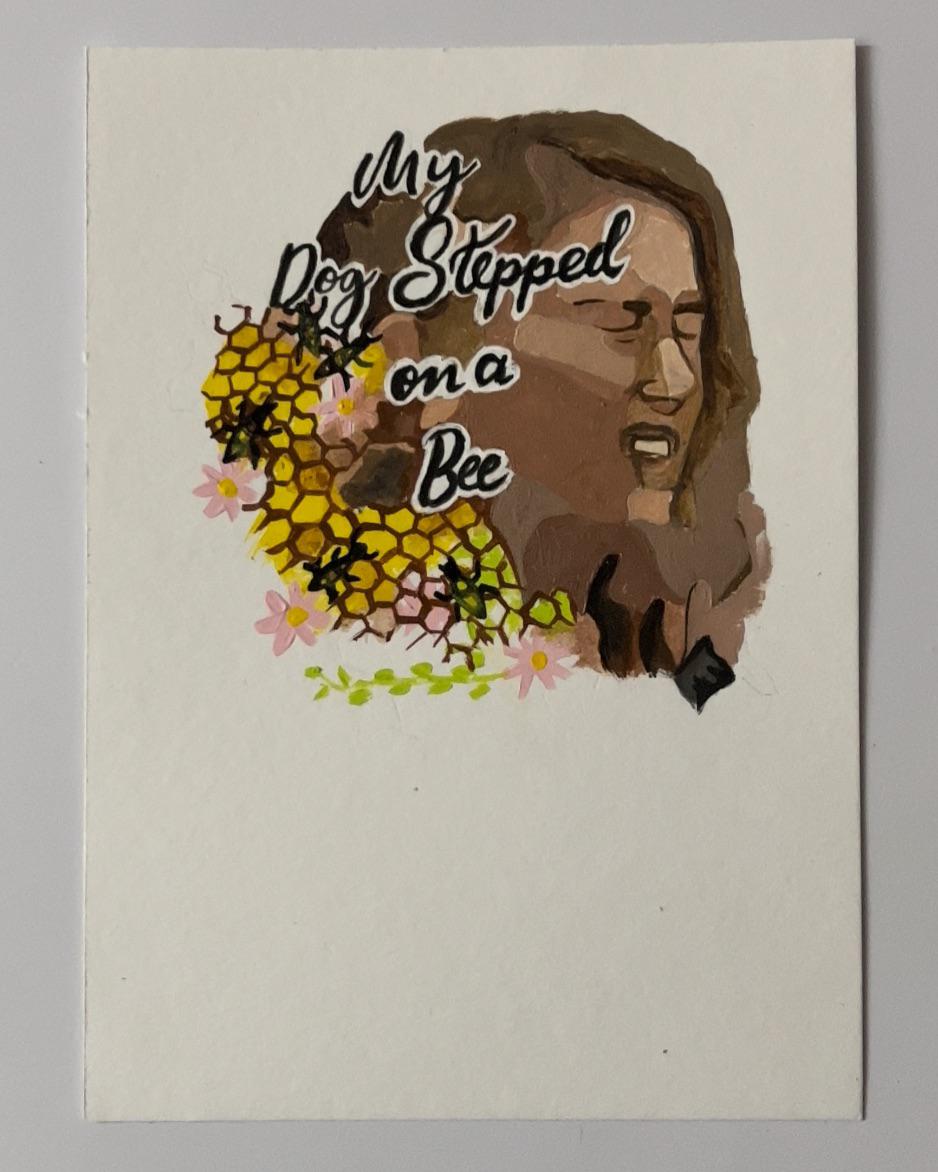 My
Dog Stepped
on a
Bee